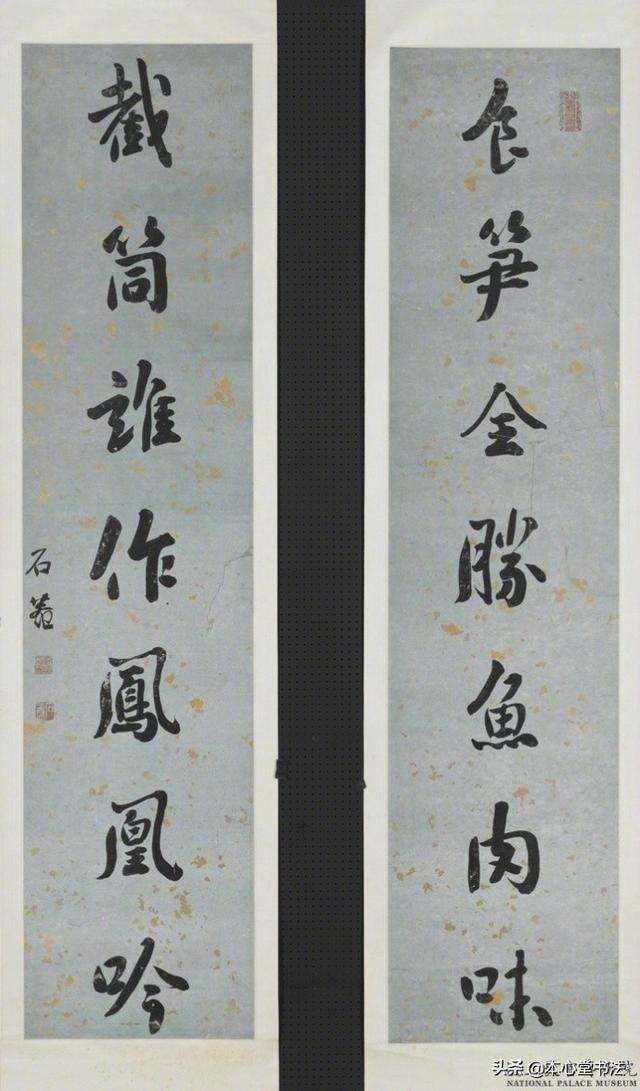 食笋全勝魚肉味
截筒誰作鳳凰吟
石菴
头条 @木心堂书法
NATIONAL PALACE MUSEUM